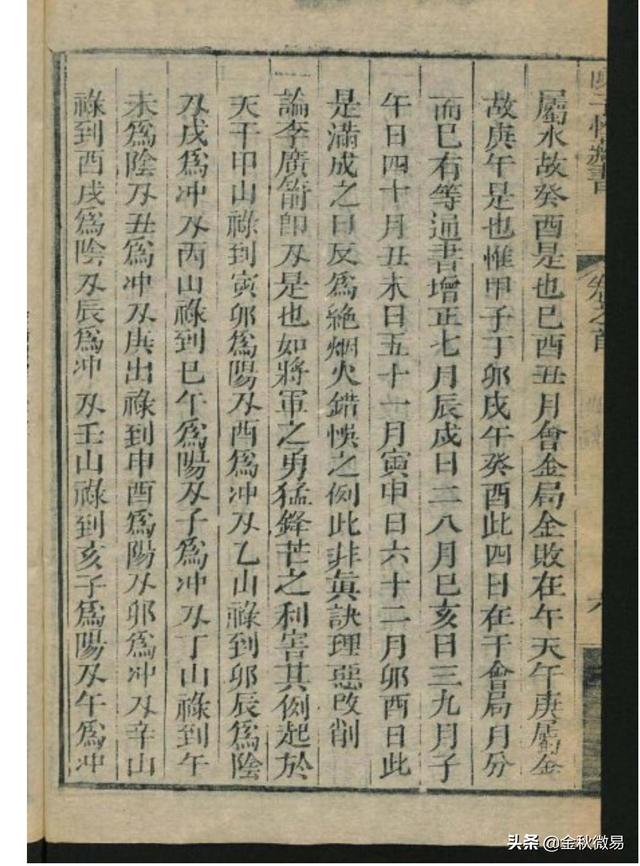 屬水故癸酉是也巳酉丑月會金局金敗在午天午庚屬金
故庚午是也惟甲子丁卯戊午癸酉此四日在于會局月分
而巳有等通書增正七月辰戌日二八月巳亥日三九月子
午日四十月丑未日五十一月寅申日六十二月卯酉日此
是滿成之日反爲絶烟火錯悞之例此非眞訣理惡改削
論李廣箭卽刄是也如將軍之勇猛鋒芒之利害其例起於
天干甲山祿到寅卯爲陽刄酉爲冲刄乙山祿到卯辰爲陰
刄戌爲冲刄丙山祿到巳午爲陽刄子爲冲刄丁山祿到午
未爲陰刄丑爲冲刄庚出祿到申酉爲陽刄卯爲冲刄辛山
祿到酉戌爲陰刄辰爲冲刄壬山祿到亥子爲陽刄午爲冲
卷之首
頭条 @金秋微易